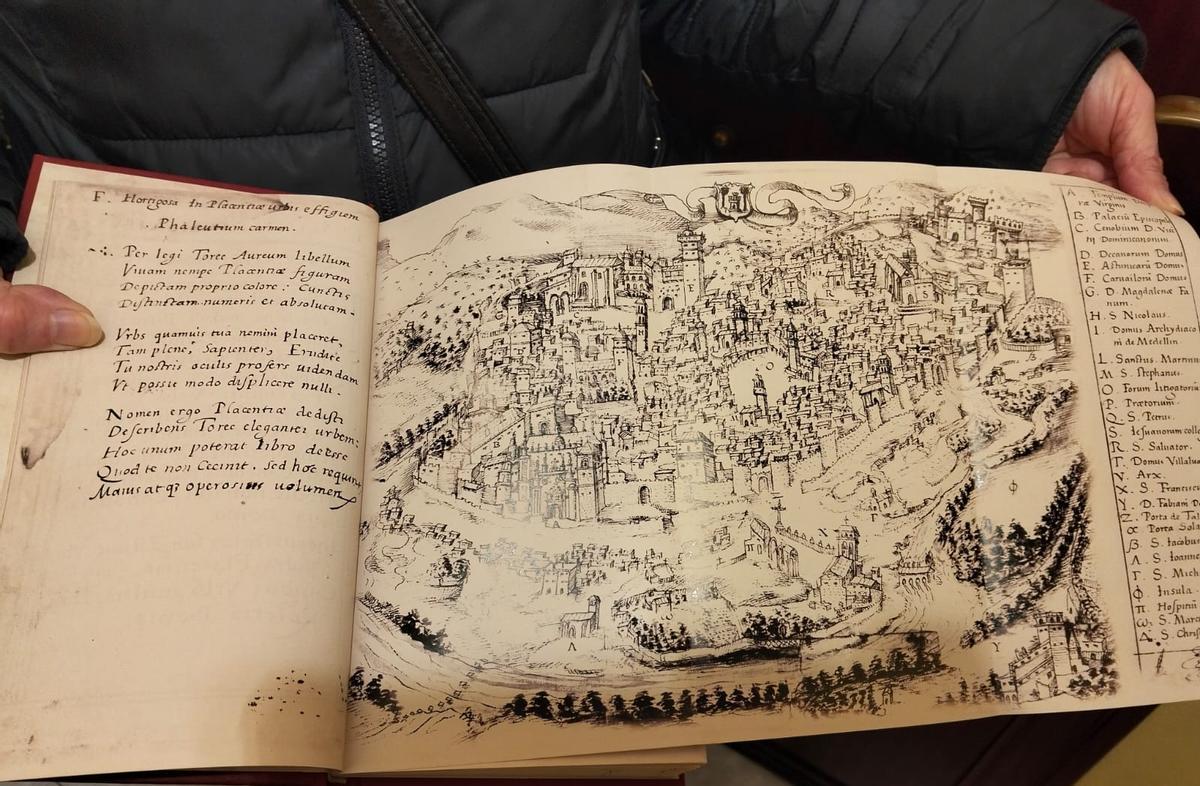 F. Hortigosa In Placentiæ urbis effigiem
Phaleutium carmen.
Per legi Toree Aureum libellum
Viuam nempe Placentiæ figuram
Depictam proprio colore: Cunctis
Distinctam numeris et absolutam.
Vrbs quamuis tua nemini placeret,
Tam plene, Sapienter, Erudite
Tu nostris oculis profers uidendam
Vt possit modo displicere nulli.
Nomen ergo Placentiæ dedisti
Describens Toree eleganter urbem:
Hoc unum poterat libro deesse
Quod te non Cecinit. sed hoc requirit
Maius atq3 operosius uolumen
A. Templum
ræ Virginis
B. Palatiū Episcopal
C. Cenobium D. Vin
tij Dominicanorum.
D. Decanorum Domus
E. Domus
F. Domus
G. D. Magdalenæ Fa
num.
H. S Nicolaus.
I. Domus Archydiaco
ni de Medellin.
L. Sanctus. Martinus
M S. Stephanus.
O Forum litigatoriū
P. Prætorium.
Q. S. Petrus.
S. Iesuanorum colle
R. S. Saluator.
T. Domus Villalua
V. Arx.
X. S. Franciscu
Y. D. Fabiani Do
Z. Porta de Tal
α Porta Sola
β. S. Iacobus
Λ. S. Ioanne
Γ S. Mich
Φ. Insula
π. Hospitiū
ω. S. Marc
Δ. S. Chris
O
B
N
Γ
Φ
Λ
Y